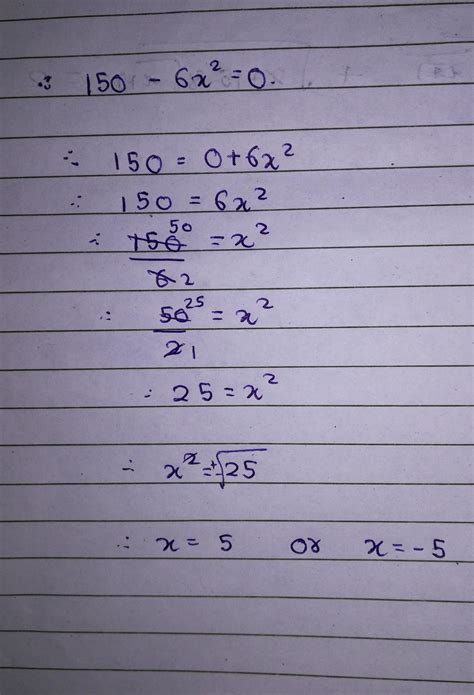 ∴ 150 - 6x² = 0.
∴ 150 = 0 + 6x²
∴ 150 = 6x²
∴ 150 50 / 6 2 = x²
∴ 50 25 / 2 1 = x²
∴ 25 = x²
∴ x² = ±√25
∴ x = 5 or x = -5